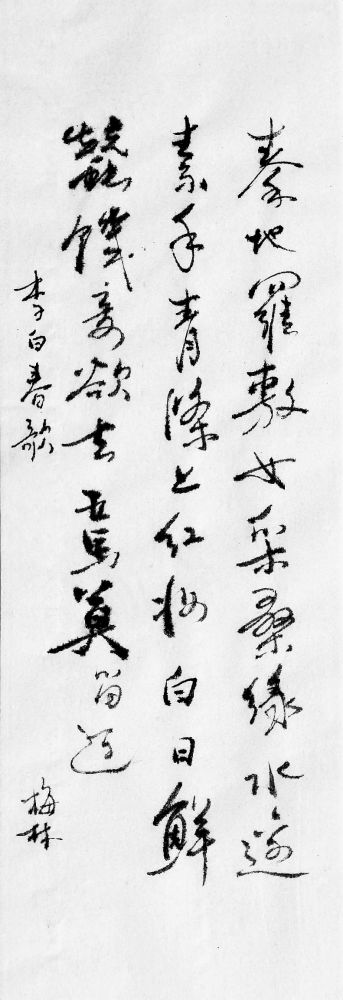 秦地羅敷女采桑綠水邊
素手青條上紅妝白日鮮
蠶饑妾欲去五馬莫留連
李白春歌
梅林